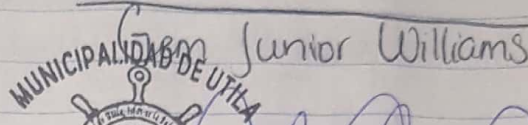 Junior Williams
MUNICIPALIDAD DE UTILA